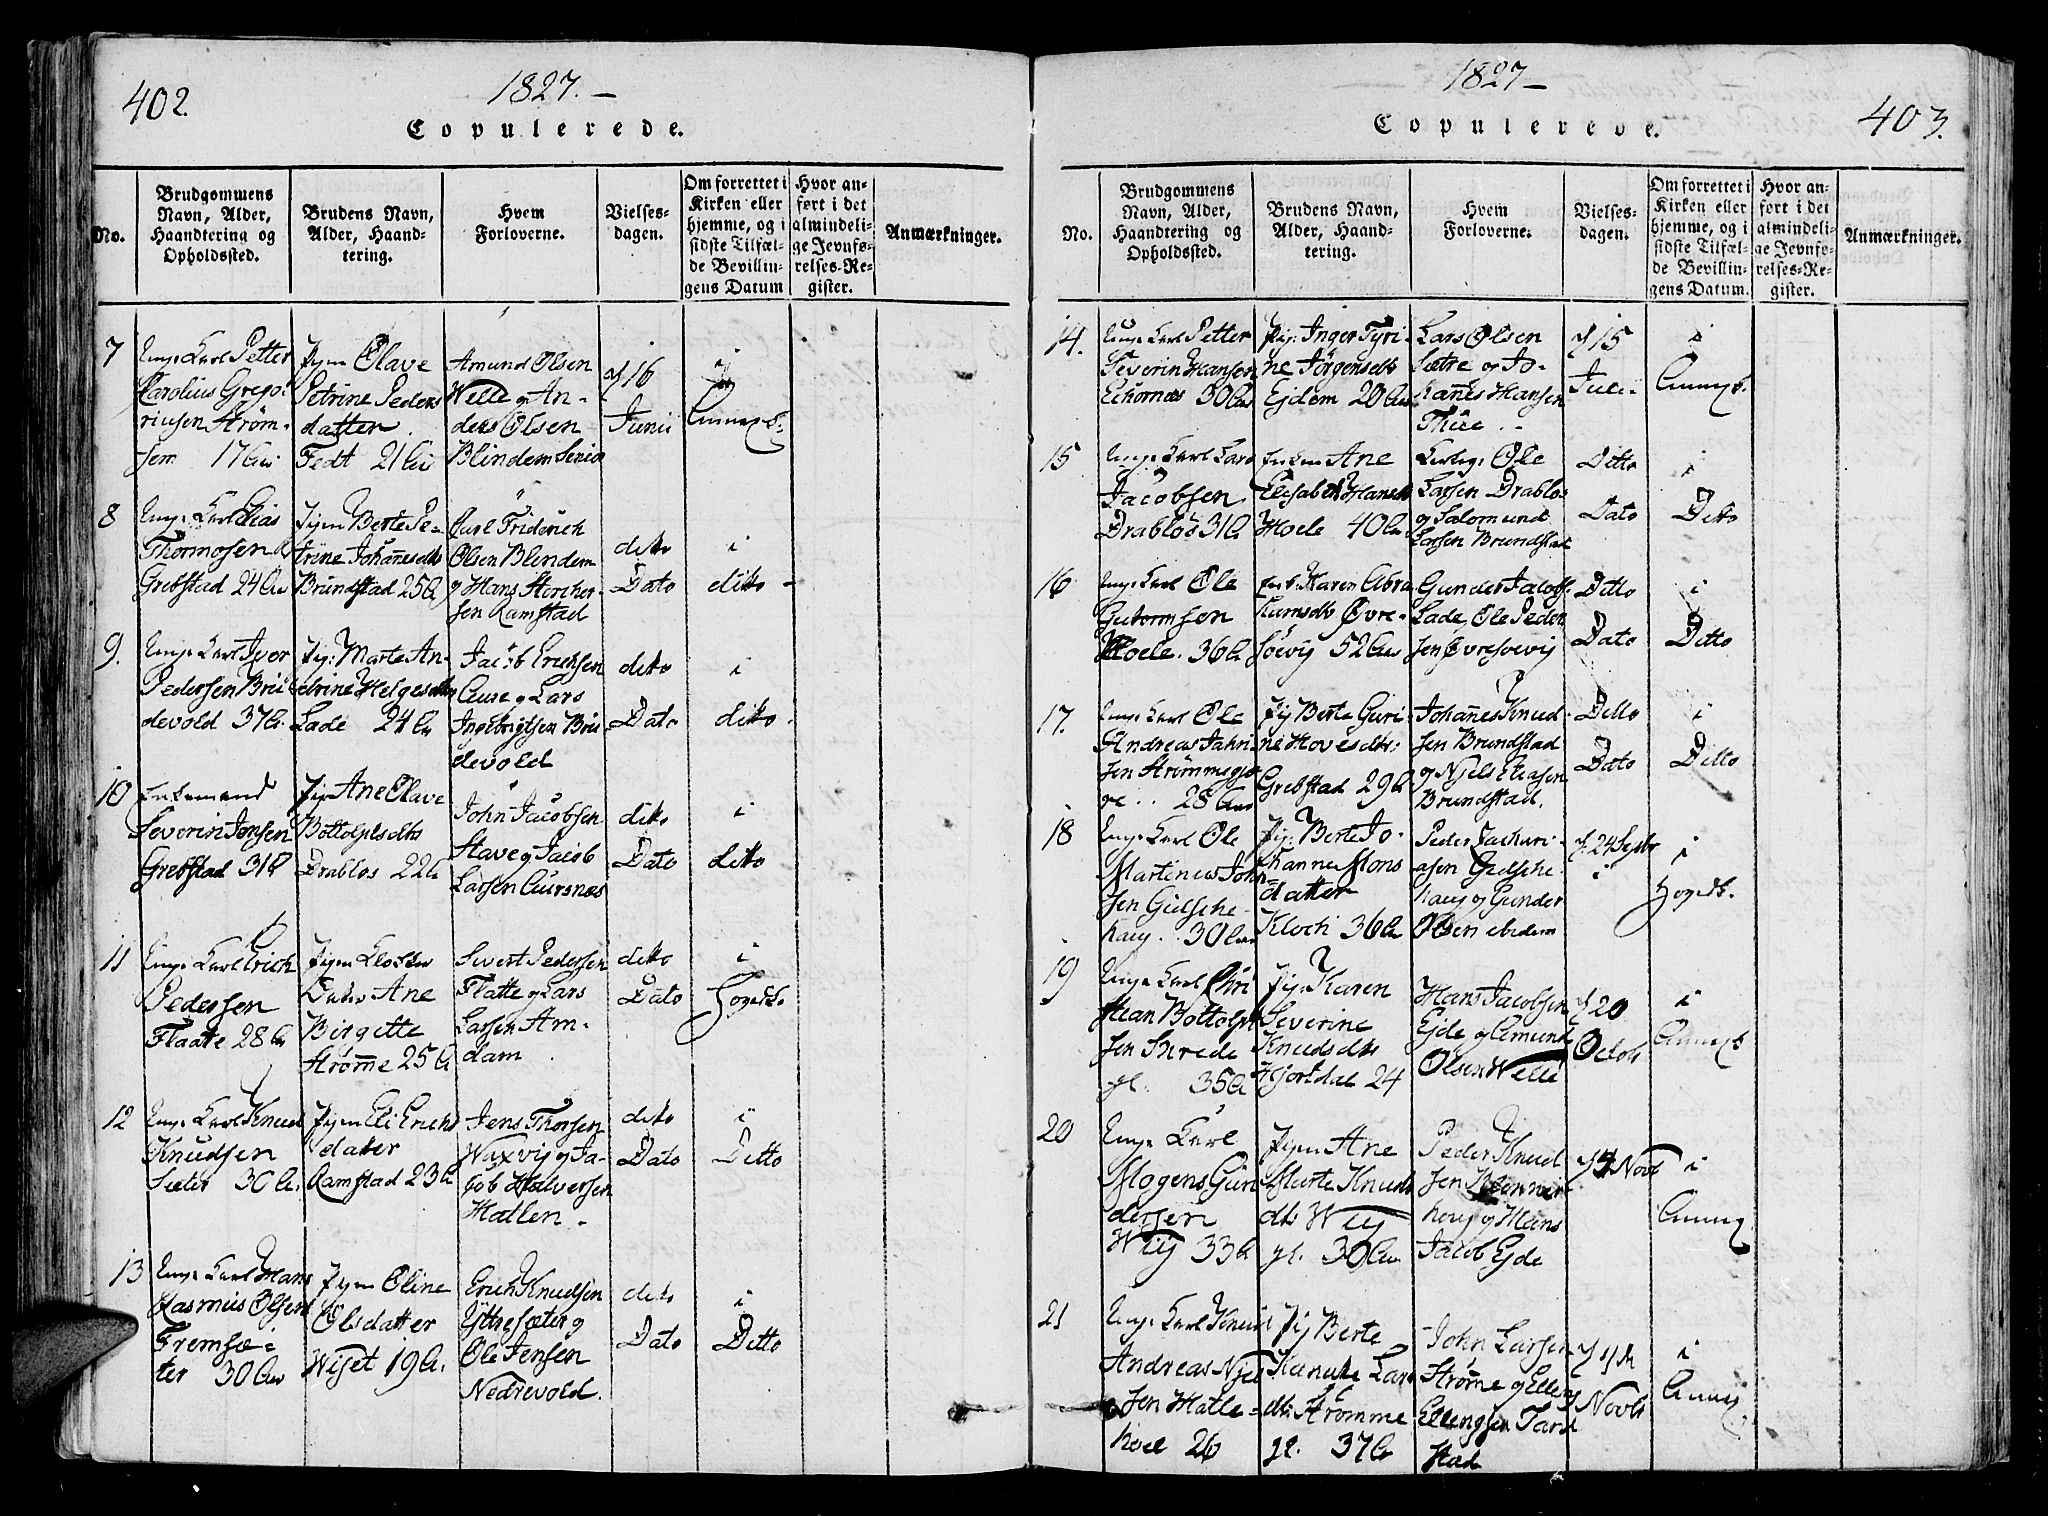 402.
1827. —
Copulerede.
No.
Brudgommens
Navn, Alder,
Haandtering og
Opholdssted.
Brudens Navn,
Alder, Haand-
tering.
Hvem
Forloverne.
Vielses-
dagen.
Om forrettet i
Kirken eller
hjemme, og i
sidste Tilfæl-
de Bevillin-
gens Datum
Hvor an-
ført i det
almindeli-
ge Jevnfø-
relses-Re-
gister.
Anmærkninger.
7
Ung Karl Petter
Karolius Grego-
riusen Strøm-
sem 17 Aar
Pigen Olave
Petrine Peders
datter.
Fedt 21 Aar
Amund Olsen
Welle og An-
ders Olsen
Blindem Senior
d 16
Junii
i
Annexet
8
Ung Karl Elias
Thormosen
Grebstad 24 Aar
Pigen Berte Pe-
trine Johannesdtr
Brundstad 25 A
Carl Friderich
Olsen Blindem
og Hans Storcher-
sen Ramstad
dito
Dato
i
dito -
9.
Ung Karl Iver
Pedersen Brü
devold 37 A.
Pig: Marte An-
drine Helgesdtr
Lade 24 A
Jacob Erichsen
Aure og Lars
Ingebrigtsen Brü
devold
dito
Dato
i
dito -
10
Enkemand
Severin Jensen
Grebstad 31 A
Pig Ane Olave
Bottolfsdtr
Drablos 22 A
John Jacobsen
Stave og Jacob
Larsen Aursnes
dito
Dato
i
dito
11
Ung Karl Erich
Pedersen
Flaate 28 A
Pigen Klokker
Datter Ane
Birgette
Strømme 25 A
Sivert Pedersen
Flatte og Lars
Larsen Am-
dam.
dito
Dato
i
Hogedst
12
Ung Karl Knud
Knudsen
Sæter 30 A.
Pigen Eli Erichs
datter
Ramstad 23 A
Jens Thorsen
Waxvig og Ja-
cob Halversen
Hatlen -
dito
Dato
i
Ditto
13
Ung Karl Hans
Rasmus Olsen
Fremsæ-
ter 30 Aar
Pigen Oline
Olsdatter
Wiset 19 A.
Erich Knudsen
Yttresæter og
Ole Jensen
Nedrevold.
dito
Dato
i
Ditto
1827 —
Copulerede.
403.
No.
Brudgommens
Navn, Alder,
Haandtering og
Opholdssted.
Brudens Navn,
Alder, Haand-
tering.
Hvem
Forloverne.
Vielses-
dagen.
Om forrettet i
Kirken eller
hjemme, og i
sidste Tilfæl-
de Bevillin-
gens Datum.
Hvor an-
ført i det
almindeli-
ge Jevnfø-
relses-Re-
gister.
Anmærkninger.
14.
Ung Karl Petter
Severin Hansen
Eihornes 30 Aar
Pig: Inger Tyri-
ne Jörgensdtr
Ejdem 20 Aar
Lars Olsen
Sætre og Jo-
hannes Hansen
Thüe. -
d 15
Juli
i
Annext.
15
Ung Karl Lars
Jacobsen
Drablos 31 A
Enken Ane
Elisabet Hansdtr
Hoele 40 A
Karlog: Ole
Larsen Drablos
og Salomund
Larsen Brundstad
Ditto
Dato
i
Ditto
16
Ung Karl Ole
Guttormsen
Hoele. 36 A
Enk: Karen Abra
hamsdtr Øvre-
søevig 52 Aar
Gunder Jacobs.
Lade, Ole Peder
sen Øvresøevig
Ditto
Dato
i
Ditto
17.
Ung Karl Ole
Andreas Jahri-
sen Strømmegjer
re.. 28 Aar
Pig Berte Guri-
ne Hovesdtr:
Grebstad 29 A
Johannes Knud-
sen Brundstad
og Njels Eliasen
Brundstad.
Ditto
Dato
i
Ditto
18
Ung Karl Ole
Martinus John-
sen Gielsche-
haug.. 30 Aar
Pig: Berte Jo-
hanne Mons
datter
Kloch 36 A
Peder Zachari-
asen Gielsche-
haug og Gunder
Olsen ibidem
d. 24 Septbr
i
Hogedt.
19
Ung Karl Chri
stian Bottolph
sen Borede
gl. 35 A
Pig: Karen
Severine
Knudsdtr
Hjortdal 24
Hans Jacobsen
Ejde og Amund
Olsen Welle
d 20
Octob
i
Annext
20
Ung Karl
Mogens Gun
dersen
Wiig 33 A
Pigen Ane
Marte Knuds
dtr Wiig
gl. 30 Aar
Peder Knud
sen Klenner
houg og Hans
Jacob Ejde
d 4 Novb
i
Annex
21
Ung Karl Knud
Andreas Njel
sen Hatle-
hoel 26
Pig Berte
Hanicke Lars
dtr: Strømme
gl. 37 A
John Larsen
Strøme og Elling
Ellingsen Tand
stad
d 4de
Novb
i
Annex